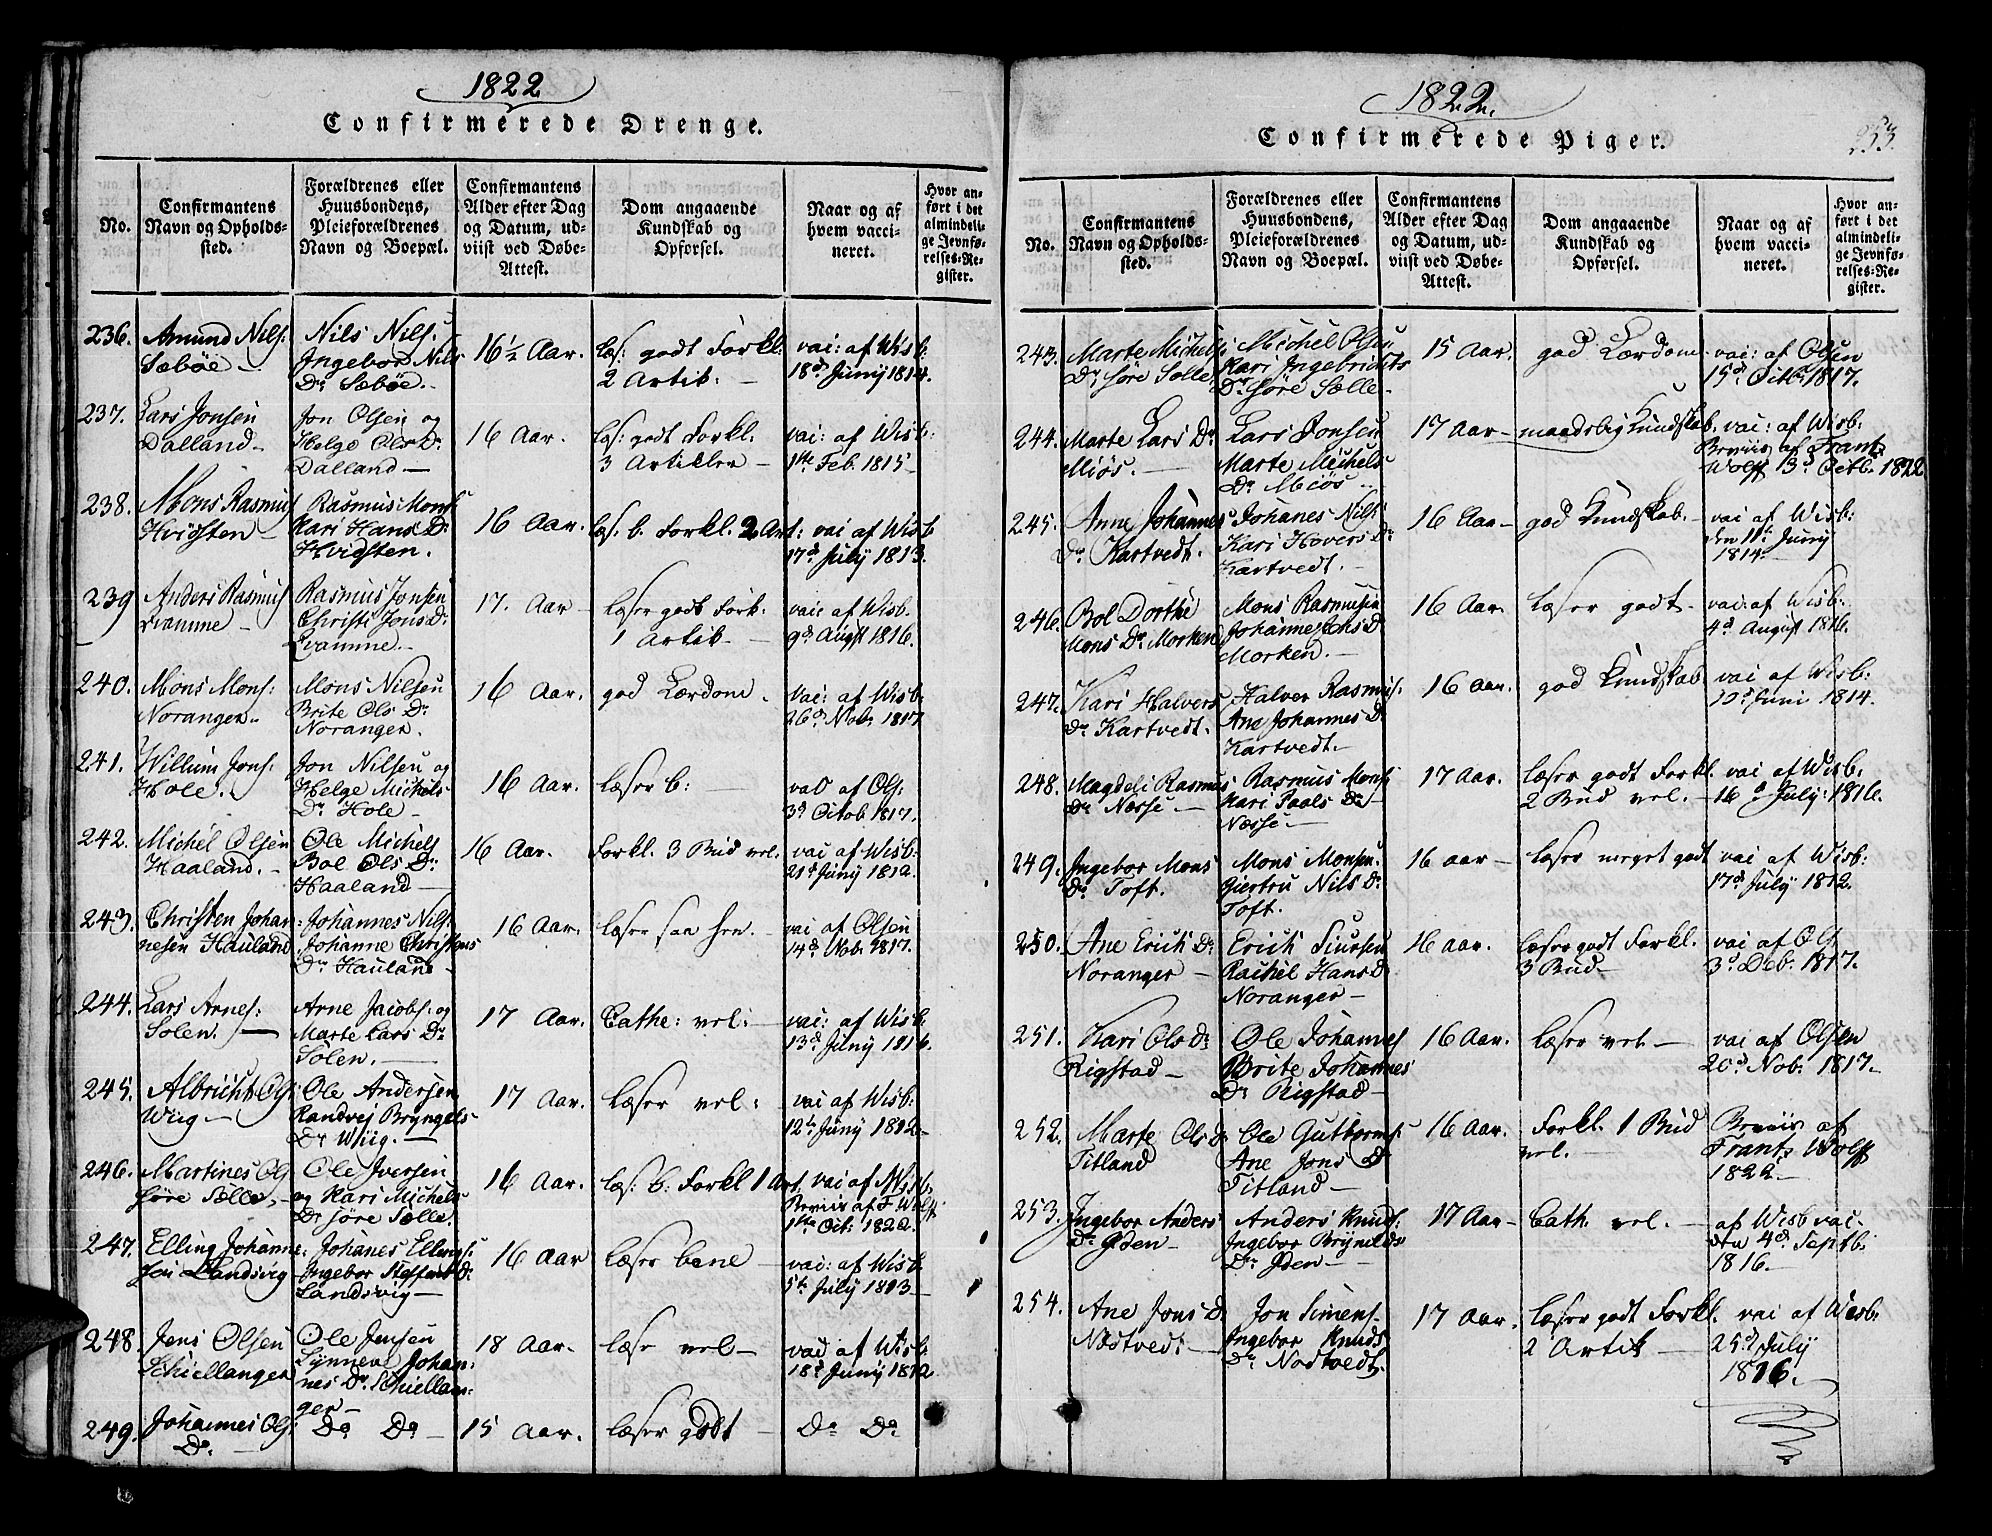 1822
Confirmerede Drenge.
No.
Confirmantens
Navn og Opholds-
sted.
Forældrenes eller
Huusbondens,
Pleieforældrenes
Navn og Boepæl.
Confirmantens
Alder efter Dag
og Datum, ud-
viist ved Døbe-
Attest.
Dom angaaende
Kundskab og
Opførsel.
Naar og af
hvem vacci-
neret.
Hvor an-
ført i det
almindeli-
ge Jevnfø-
relses-Re-
gister.
236. Amund Nils:
Sæbøe —
Nils Nils:
Ingebor Nils
Dr Sæbøe. —
16 1/2 Aar.
læs: godt Forkl:
2 Artik: —
vai: af Wisb:
18d Junij 1814.
237. Lars Jonsen
Dalland —
Jon Olsen og
Helge Ols Dr
Dalland —
16 Aar.
læs: godt Forkl.
3 Artikler —
vai: af Wisb:
1ste Feb. 1815 —
238. Mons Rasmus
Hvidsten —
Rasmus Mons:
Kari Hans Dr
Hvidsten.
16 Aar.
læs. b. Forkl. 2 Art:
vai af Wisb
17d July 1813.
239 Anders Rasmus
Qvamme —
Rasmus Jonsen
Christi Jons Dr
Qvamme. —
17. Aar
læser godt Fork:
1 Artik —
vai: af Wisb.
9d Augst 1816.
240. Mons Mons:
Noranger —
Mons Nilsen
Brite Ols Dr
Noranger.
16 Aar.
god Lærdom.
vai: af Wisb:
26d Nob: 1817
241. Willum Jons:
Hole.
Jon Nilsen og
Helge Michels
Dr Hole —
16 Aar.
læser b: —
vai af Ols:
3d Octob 1817.
242. Michel Olsen
Haaland. —
Ole Michels
Boe Ols Dr
Haaland —
16 Aar.
Forkl. 3 Bud vel.
vai af Wisb:
21d Junij 1812.
243. Christen Johan-
nesen Hauland
Johannes Nils:
Johanne Christens
Dr Hauland —
16 Aar.
læser saa hen.
vai af Olsen
14d Nob. 1817.
244. Lars Arnes:
Solen. —
Arne Jacobs: og
Marte Lars Dr
Solen. —
17 Aar.
Cathe: vel: —
vai: af Wisb:
13d Junij 1816.
245. Albricht Ols:
Wiig —
Ole Andersen
Randvej Bryngels
Dr Wiig. —
17 Aar.
læser vel:
vai af Wisb:
12te Junij 1812 —
246. Martines Ols
søre Sælle. —
Ole Iversen
og Kari Michels
Dr søre Sælle.
16 Aar.
læs: b: Forkl 1 Art.
vai af Wisb,
Breviis af F. Wolff
1ste Oct: 1822.
247. Elling Johanne-
sen Landsvig
Johanes Ellings:
Ingebor Steffens Dr
Landsvig —
16 Aar
læser bene —
vai: af Wisb:
5te July 1813 —
248 Jens Olsen
Schiellanger
Ole Jensen
Synneva Johan-
nes Dr Schiellan-
ger —
18 Aar.
læse vel —
vai af Wisb:
18d Junij 1812
249. Johannes Ols:
Do —
Do Do —
15 Aar.
læser godt
Do Do
1822.
253.
Confirmerede Piger.
No.
Confirmantens
Navn og Opholds-
sted.
Forældrenes eller
Huusbondens,
Pleieforældrenes
Navn og Boepæl.
Confirmantens
Alder efter Dag
og Datum, ud-
viist ved Døbe-
Attest.
Dom angaaende
Kundskab og
Opførsel.
Naar og af
hvem vacci-
neret.
Hvor an-
ført i det
almindeli-
ge Jevnfø-
relses-Re-
gister.
243. Marte Michels
Dr søre Sælle
Michel Olsen
Kari Ingebrichts
Dr søre Sælle —
15 Aar.
god Lærdom
vai: af Olsen
15d Octb: 1817.
244. Marte Lars Dr
Miøs. —
Lars Jonsen
Marte Michels
Dr Meios —
17 Aar —
maadelig Kundskab.
vai: af Wisb:
Breviis af Frant
Wolff 13d Octb. 1822
245. Anne Johannes
Dr Kartvedt.
Johanes Nils:
Kari Havers Dr
Kartvedt. —
16 Aar —
god Kundskab. —
vai af Wisb:
den 11d Junij
1814.
246. Bol Dorthe
Mons Dr Morken
Mons Rasmusen
Johanne Jons D
Morken. —
16 Aar.
læser godt —
vai: af Wisb:
4d August 1816.
247. Kari Halvers
Dr Kartvedt.
Halver Rasmus:
Ane Johannes D
Kartvedt. —
16 Aar.
god Kundskab
vai af Wisb:
Juni 1814.
248. Magdeli Rasmus
Dr Næsse —
Rasmus Mons:
Kari Paals Dr
Næsse —
17 Aar.
læser godt Forkl.
2 Bud vel. —
vai af Wisb:
16d July: 1816.
249. Ingebor Mons
Dr Toft.
Mons Monsen
Giertru Nils Dr
Toft.
16 aar —
læser meget godt
vai af Wisb:
17d July 1812.
250. Ane Erich Dr
Noranger —
Erich Siursen
Rachel Hans D
Noranger —
16 aar.
læser godt Forkl.
3 Bud —
vai af Ols
3d Deb: 1817.
251. Kari Ols Dr
Rigstad —
Ole Johannes
Brite Johannes
Dr Rigstad —
16 Aar.
læser vel —
vai af Olsen
20d Nob: 1817 —
252. Marte Ols D
Titland
Ole Guttorms:
Ane Jons D
Titland —
16 Aar.
Forkl. 1 Bud
vel. —
Breviis af
Frants Wolff
1822 —
253. Ingebor Anders
Dr Yden —
Anders Knuds:
Ingebor Brynilds
Dr Yden —
17 Aar —
Cath. vel. —
af Wisb vai —
den 4d Septb:
1816. —
254. Ane Jons D
Nostvedt: —
Jon Simens
Ingebor Knuds
Dr Nostvedt.
17 Aar.
læser godt Forkl.
2 Artik —
vai af Wisb:
25d July
1816.